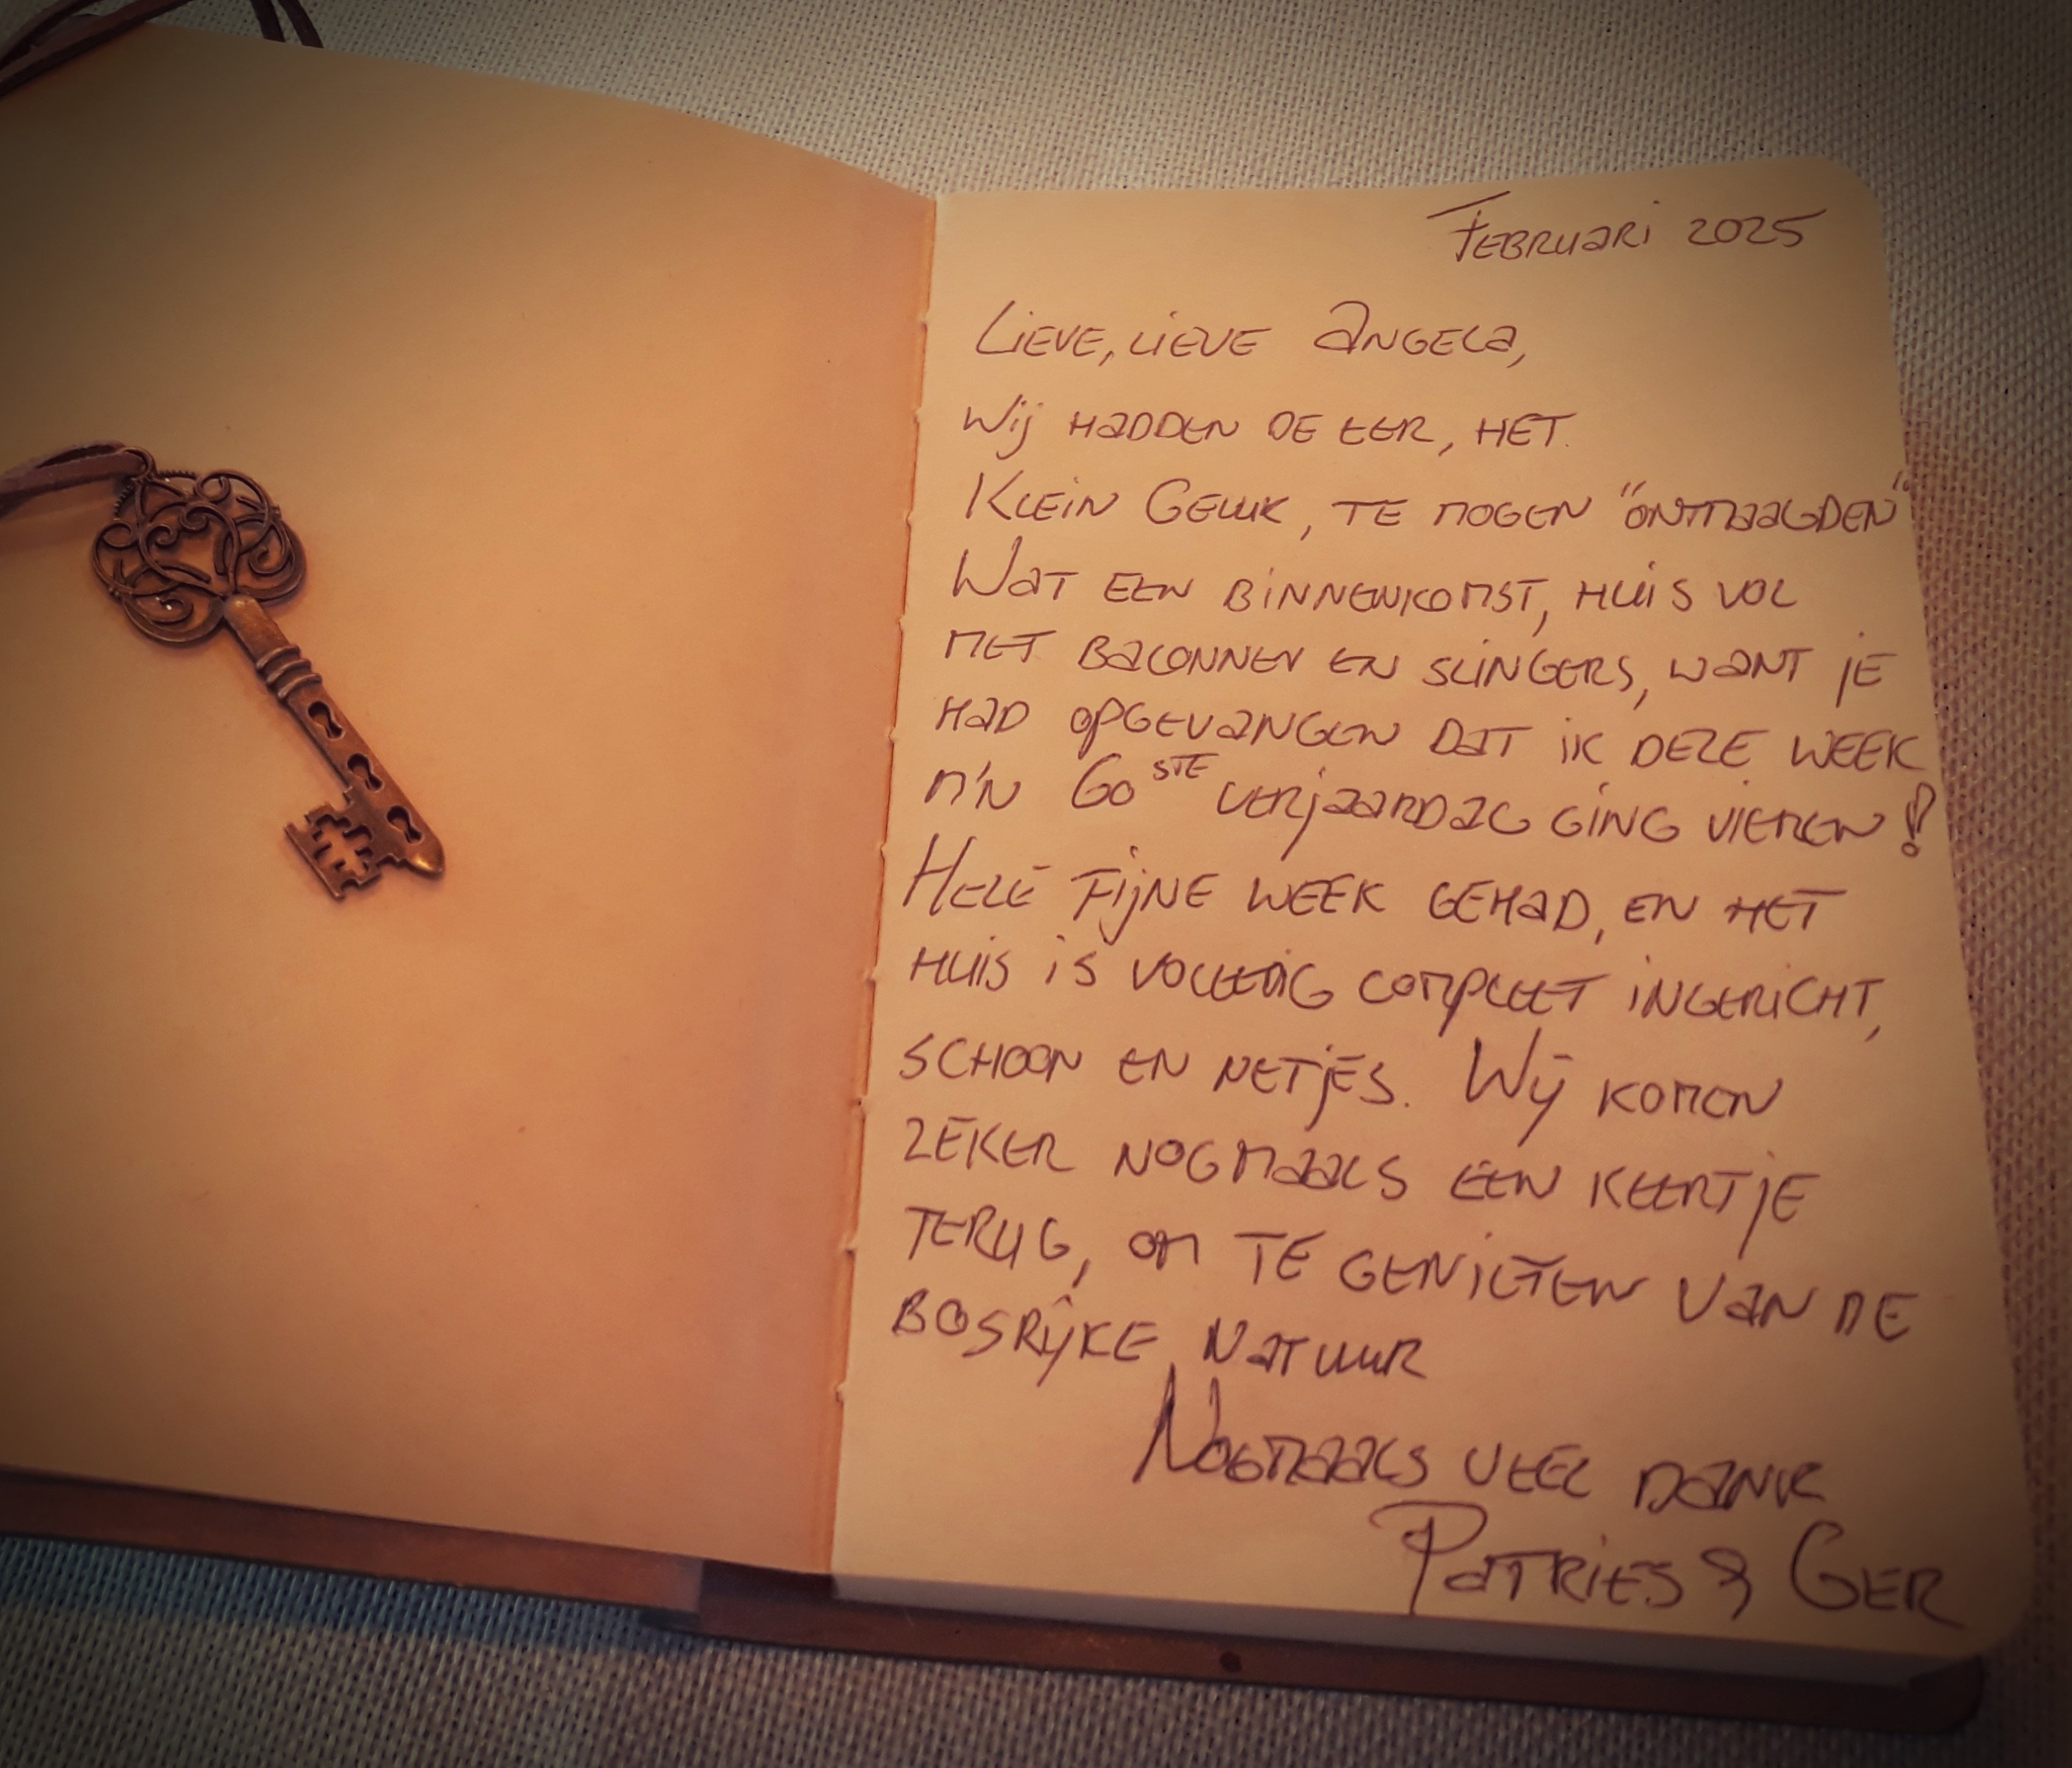 Februari 2025
Lieve, lieve Angela,
Wij hadden de eer, het
Klein Geluk, te mogen "ontmaagden"
Wat een binnenkomst, huis vol
met balonnen en slingers, want je
had opgevangen dat ik deze week
m'n 60ste verjaardag ging vieren!
Hele fijne week gehad, en het
huis is volledig compleet ingericht,
schoon en netjes. Wij komen
zeker nogmaals een keertje
terug, om te genieten van de
bosrijke natuur
Nogmaals veel dank
Patries & Ger